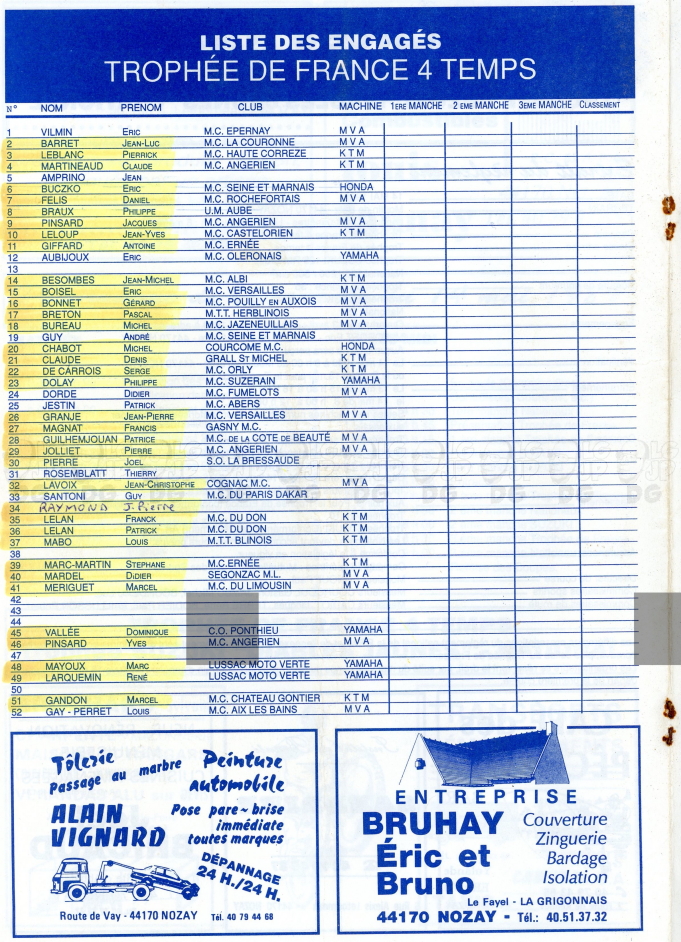 LISTE DES ENGAGÉS
TROPHÉE DE FRANCE 4 TEMPS
N° NOM PRENOM CLUB MACHINE 1ERE MANCHE 2 EME MANCHE 3EME MANCHE CLASSEMENT
1 VILMIN ERIC M.C. EPERNAY M V A
2 BARRET JEAN-LUC M.C. LA COURONNE M V A
3 LEBLANC PIERRICK M.C. HAUTE CORREZE K T M
4 MARTINEAUD CLAUDE M.C. ANGERIEN K T M
5 AMPRINO JEAN
6 BUCZKO ERIC M.C. SEINE ET MARNAIS HONDA
7 FELIS DANIEL M.C. ROCHEFORTAIS M V A
8 BRAUX PHILIPPE U.M. AUBE
9 PINSARD JACQUES M.C. ANGERIEN M V A
10 LELOUP JEAN-YVES M.C. CASTELORIEN K T M
11 GIFFARD ANTOINE M.C. ERNÉE
12 AUBIJOUX ERIC M.C. OLERONAIS YAMAHA
13
14 BESOMBES JEAN-MICHEL M.C. ALBI K T M
15 BOISEL ERIC M.C. VERSAILLES M V A
16 BONNET GÉRARD M.C. POUILLY EN AUXOIS M V A
17 BRETON PASCAL M.T.T. HERBLINOIS M V A
18 BUREAU MICHEL M.C. JAZENEUILLAIS M V A
19 GUY ANDRÉ M.C. SEINE ET MARNAIS
20 CHABOT MICHEL COURCOME M.C. HONDA
21 CLAUDE DENIS GRALL ST MICHEL K T M
22 DE CARROIS SERGE M.C. ORLY K T M
23 DOLAY PHILIPPE M.C. SUZERAIN YAMAHA
24 DORDE DIDIER M.C. FUMELOTS M V A
25 JESTIN PATRICK M.C. ABERS
26 GRANJE JEAN-PIERRE M.C. VERSAILLES M V A
27 MAGNAT FRANCIS GASNY M.C.
28 GUILHEMJOUAN PATRICE M.C. DE LA COTE DE BEAUTÉ M V A
29 JOLLIET PIERRE M.C. ANGERIEN M V A
30 PIERRE JOEL S.O. LA BRESSAUDE
31 ROSEMBLATT THIERRY
32 LAVOIX JEAN-CHRISTOPHE COGNAC M.C. M V A
33 SANTONI GUY M.C. DU PARIS DAKAR
34 RAYMOND J. Pierre
35 LELAN FRANCK M.C. DU DON K T M
36 LELAN PATRICK M.C. DU DON K T M
37 MABO LOUIS M.T.T. BLINOIS K T M
38
39 MARC-MARTIN STEPHANE M.C.ERNÉE K T M
40 MARDEL DIDIER SEGONZAC M.L. M V A
41 MERIGUET MARCEL M.C. DU LIMOUSIN M V A
42
43
44
45 VALLÉE DOMINIQUE C.O. PONTHIEU YAMAHA
46 PINSARD YVES M.C. ANGERIEN M V A
47
48 MAYOUX MARC LUSSAC MOTO VERTE YAMAHA
49 LARQUEMIN RENÉ LUSSAC MOTO VERTE YAMAHA
50
51 GANDON MARCEL M.C. CHATEAU GONTIER K T M
52 GAY - PERRET LOUIS M.C. AIX LES BAINS M V A
Tôlerie Peinture
Passage au marbre automobile
ALAIN
VIGNARD
Pose pare~brise
immédiate
toutes marques
DÉPANNAGE
24 H./24 H.
Route de Vay - 44170 NOZAY Tél. 40 79 44 68
ENTREPRISE
BRUHAY
Éric et
Bruno
Couverture
Zinguerie
Bardage
Isolation
Le Fayel - LA GRIGONNAIS
44170 NOZAY - Tél.: 40.51.37.32